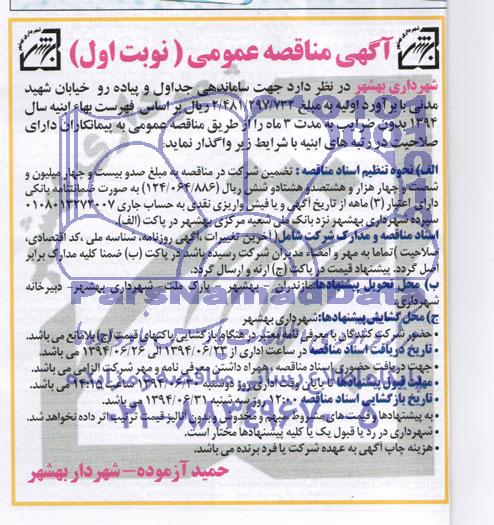 آگهی مناقصه عمومی ( نوبت اول)
شهرداری بهشهر در نظر دارد جهت ساماندهی جداول و پیاده رو خیابان شهید
مدنی با برآورد اولیه به مبلغ ۲/۴۸۱/۲۹۷/۷۳۲ ریال بر اساس فهرست بهاء ابنیه سال
۱۳۹۴ بدون ضرایب به مدت ۳ ماه را از طریق مناقصه عمومی به پیمانکاران دارای
صلاحیت در رتبه های ابنیه با شرایط زیر واگذار نماید:
الف) نحوه تنظیم اسناد مناقصه : تضمین شرکت در مناقصه به مبلغ صدو بیست و چهار میلیون و
شصت و چهار هزار و هشتصدو هشتادو شش ریال (۱۲۴/۰۶۴/۸۸۶) به صورت ضمانتنامه بانکی
دارای اعتبار (۳) ماهه از تاریخ آگهی و یا فیش واریزی نقدی به حساب جاری ۰۱۰۸۰۱۳۲۷۲۰۰۷
سپرده شهرداری بهشهر نزد بانک ملی شعبه مرکزی بهشهر در پاکت (الف)
اسناد مناقصه و مدارک شرکت شامل( آخرین تغییرات ،آگهی روزنامه، شناسه ملی ،کد اقتصادی،
صلاحیت ) تماما به مهر و امضاء مدیران شرکت رسیده باشد در پاکت (ب) ضمنا کلیه مدارک برابر
اصل گردد. پیشنهاد قیمت در پاکت (ج) ارئه و ارسال گردد.
ب) محل تحویل پیشنهادها:مازندران – بهشهر – پارک ملت – شهرداری بهشهر- دبیرخانه
شهرداری.
ج) محل گشایش پیشنهادها: شهرداری بهشهر
• حضور شرکت کنندگان با معرفی نامه معتبر در هنگام بازگشایی پاکتهای قیمت (ج) بلامانع می باشد.
• تاریخ دریافت اسناد مناقصه در ساعت اداری از ۱۳۹۴/۰۶/۲۳ الی ۱۳۹۴/۰۶/۲۶ می باشد.
• جهت دریافت حضوری اسناد مناقصه ، همراه داشتن معرفی نامه و مهر شرکت الزامی می باشد.
• مهلت قبول پیشنهادها تا پایان وقت اداری روز دوشنبه ساعت ۱۴:۱۵ می باشد.
• تاریخ بازگشایی اسناد مناقصه ۱۲:۰۰ روز سه شنبه ۱۳۹۴/۰۶/۳۱ می باشد.
• به پیشنهادها و قیمت های مشروط، مبهم و مخدوش و بدون آنالیز قیمت ترتیب اثر داده نخواهد شد.
• شهرداری در رد یا قبول یک یا کلیه پیشنهادها مختار است.
• هزینه چاپ آگهی به عهده شرکت یا فرد برنده می باشد.
حمید آزموده – شهردار بهشهر
ParsNamadData